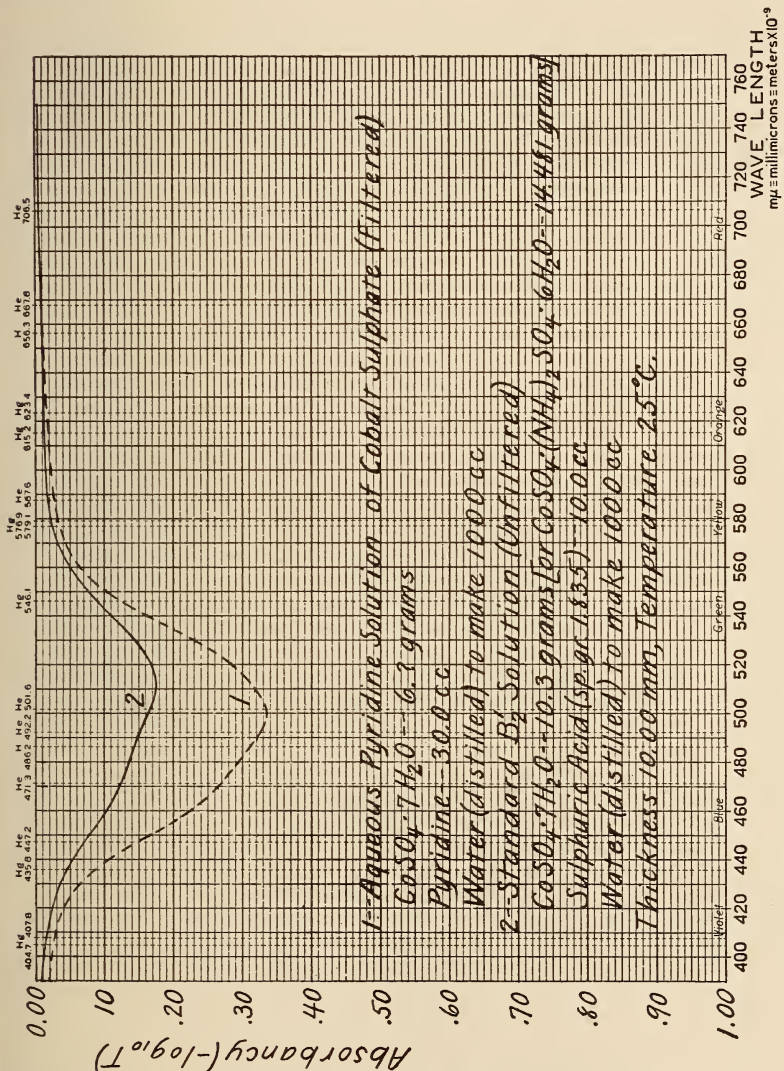 Hg Hg He He H He He Hg Hg He Hg H He He
404.7 407.8 435.8 447.2 471.3 486.2 492.2 501.6 546.1 576.9 579.1 587.6 615.2 623.4 656.3 667.8 706.5
Absorbancy (-log₁₀T)
0.00
.10
.20
.30
.40
.50
.60
.70
.80
.90
1.00
2
1
1--Aqueous Pyridine Solution of Cobalt Sulphate (Filtered)
CoSO₄·7H₂O--6.? grams
Pyridine--300 cc
Water (distilled) to make 1000 cc
2--Standard B₂' Solution (Unfiltered)
CoSO₄·7H₂O--10.3 grams [or CoSO₄·(NH₄)₂SO₄·6H₂O--14.481 grams]
Sulphuric Acid (sp.gr. 1.835)--10.0 cc
Water (distilled) to make 1000 cc
Thickness 10.00 mm, Temperature 25°C.
Violet Blue Green Yellow Orange Red
400 420 440 460 480 500 520 540 560 580 600 620 640 660 680 700 720 740 760
WAVE LENGTH
mμ≡millimicrons≡metersX10⁻⁹